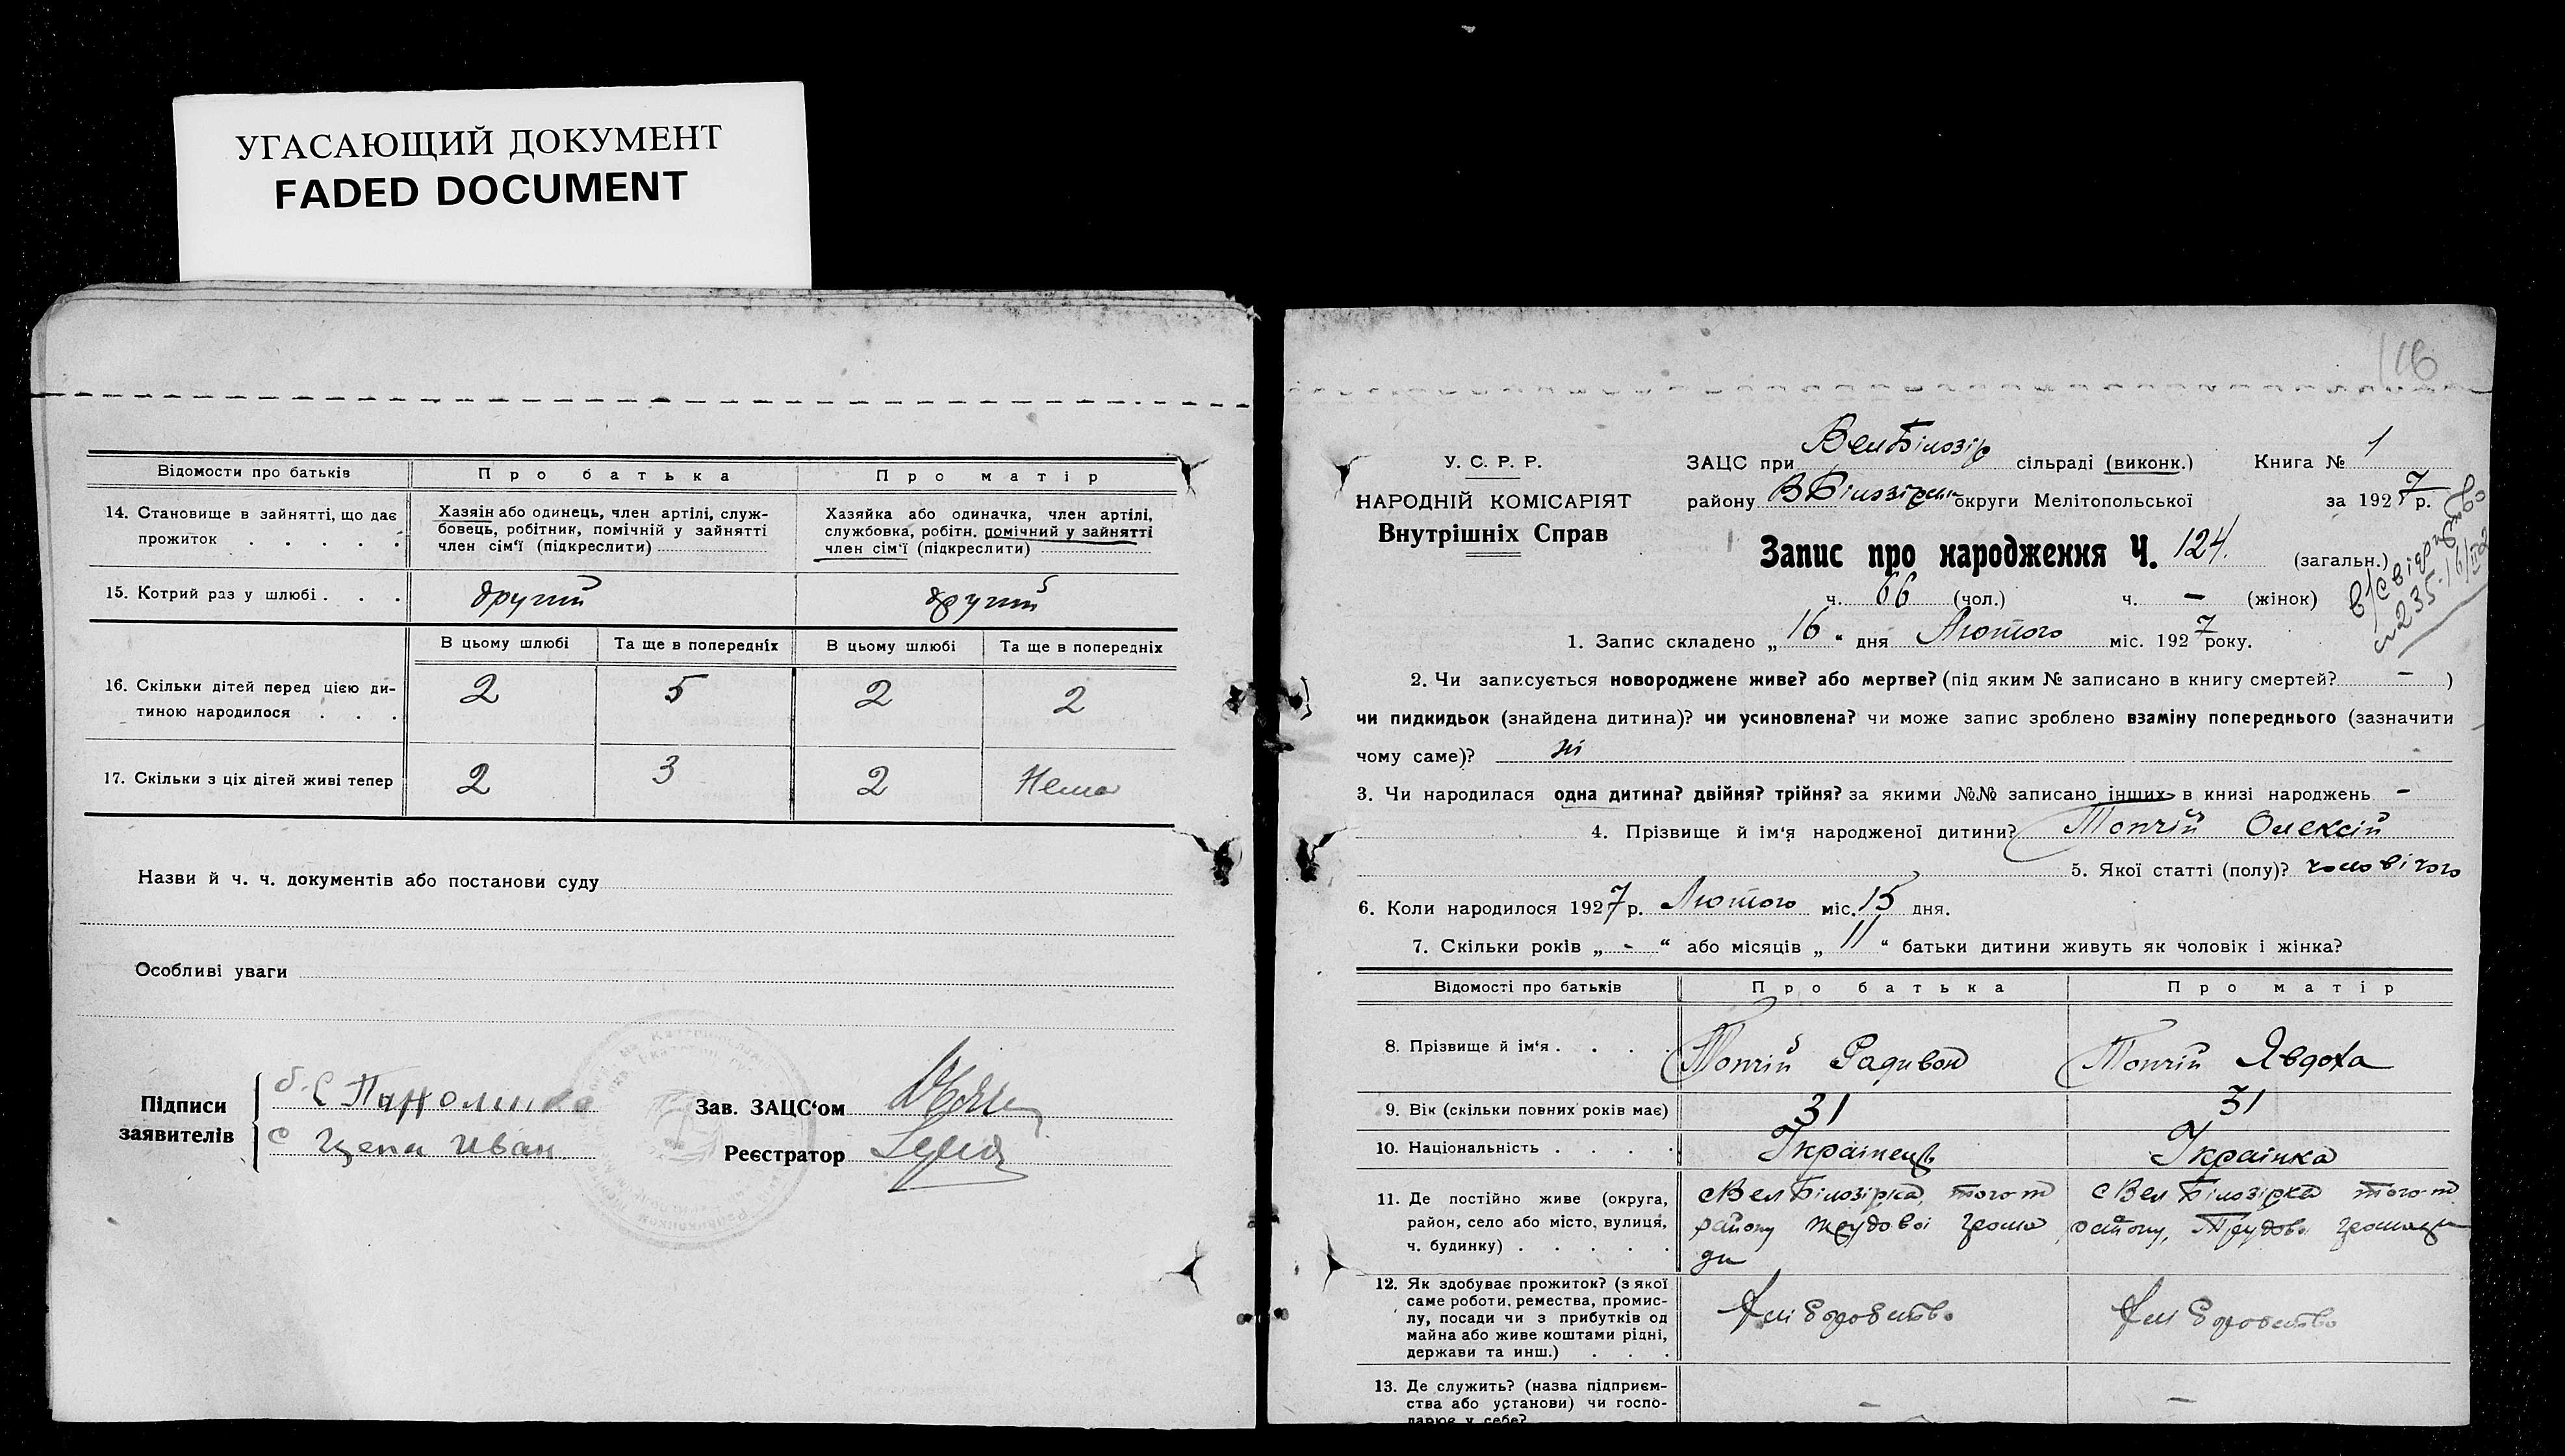 УГАСАЮЩИЙ ДОКУМЕНТ
FADED DOCUMENT
Відомости про батьків
Про батька
Про матір
14. Становище в зайнятті, що дає
прожиток . . . . .
Хазяін або одинець, член артілі, служ-
бовець, робітник, помічній у зайнятті
член сім'ї (підкреслити)
Хазяйка або одиначка, член артілі,
службовка, робітн. помічний у зайнятті
член сім'ї (підкреслити)
15. Котрий раз у шлюбі . . .
другий
другий
В цьому шлюбі
Та ще в попередніх
В цьому шлюбі
Та ще в попередніх
16. Скільки дітей перед цією ди-
тиною народилося . . .
2
5
2
2
17. Скільки з ціх дітей живі тепер
2
3
2
Нема
Назви й ч. ч. документів або постанови суду
Особливі уваги
Підписи
заявителів
Цепа Иван
Зав. ЗАЦС'ом
Реєстратор
116
У. С. Р. Р.
НАРОДНІЙ КОМІСАРІЯТ
Внутрішніх Справ
ЗАЦС при Вел Білозір сільраді (виконк.) Книга № 1
району В Білозірськ округи Мелітопольської за 1927 р.
Запис про народження Ч. 124. (загальн.)
ч. 66 (чол.) ч. – (жінок)
1. Запис складено „16“ дня Лютого міс. 1927 року.
2. Чи записується новороджене живе? або мертве? (під яким № записано в книгу смертей? – )
чи пидкидьок (знайдена дитина)? чи усиновлена? чи може запис зроблено взаміну попереднього (зазначити
чому саме)? ні
3. Чи народилася одна дитина? двійня? трійня? за якими №№ записано інших в книзі народжень –
4. Прізвище й ім'я народженої дитини? Топчій Олексій
5. Якої статті (полу)? чоловічого
6. Коли народилося 1927 р. Лютого міс. 15 дня.
7. Скільки років „ - “ або місяців „ 11 “ батьки дитини живуть як чоловік і жінка?
Відомості про батьків
Про батька
Про матір
8. Прізвище й ім'я . . . .
Топчій Радивон
Топчій Явдоха
9. Вік (скільки повних років має)
31
31
10. Національність . . . .
Українець
Українка
11. Де постійно живе (округа,
район, село або місто, вулиця,
ч. будинку) . . . . .
с Вел Білозірка того-ж
району трудової грома
ди
с Вел Білозірка того-ж
району, Трудово громади
12. Як здобуває прожиток? (з якої
саме роботи, ремества, промис-
лу, посади чи з прибутків од
майна або живе коштами рідні,
держави та инш.) . . .
13. Де служить? (назва підприєм-
ства або установи) чи госпо-
дарює у себе?
–
–